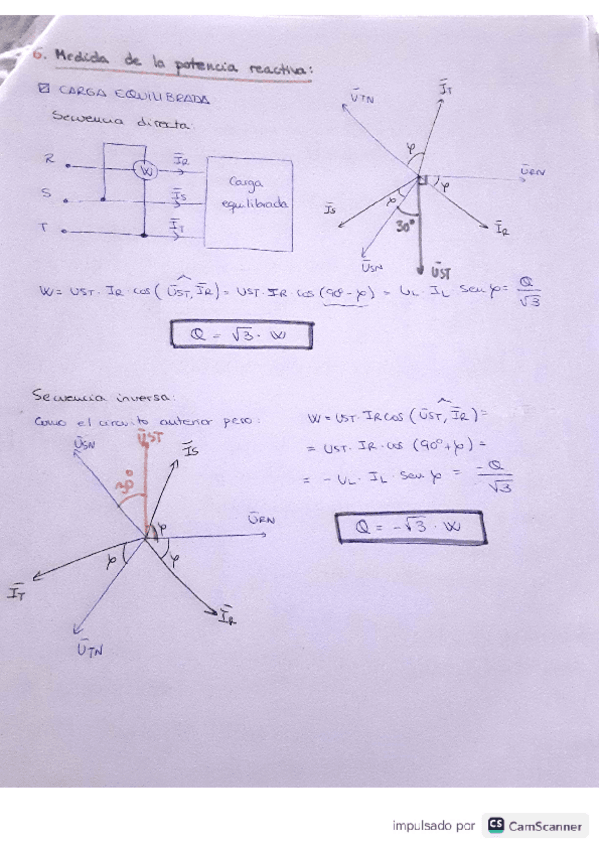 6. Medida de la potencia reactiva:
☑ CARGA EQUILIBRADA
Secuencia directa:
R
S
T
W
I̅R
I̅S
I̅T
Carga
equilibrada
U̅TN
I̅T
φ
U̅RN
φ
I̅S
φ
30°
I̅R
U̅SN
U̅ST
W = UST · IR cos (U̅ST, I̅R) = UST · IR · cos (90 - φ) = UL · IL sen φ = Q/√3
Q = √3 · W
Secuencia inversa:
Como el circuito anterior pero:
U̅SN
U̅ST
I̅S
30°
φ
U̅RN
φ
φ
I̅T
I̅R
U̅TN
W = UST · IR cos (U̅ST, I̅R) =
= UST · IR · cos (90° + φ) =
= - UL · IL · sen φ = -Q/√3
Q = -√3 · W
impulsado por CS CamScanner